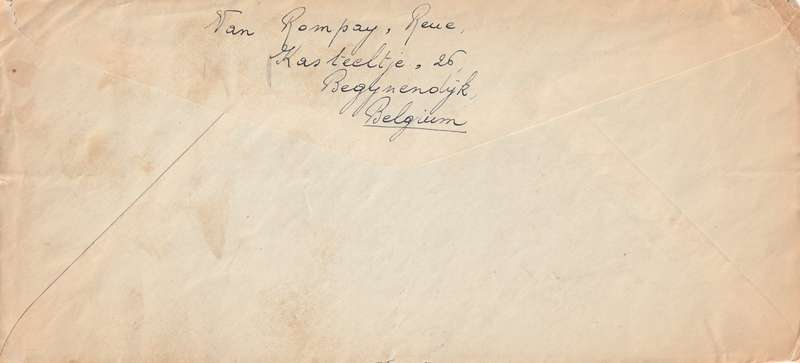 Van Rompay, Rene,
Kasteeltje, 26,
Begynendijk,
Belgium